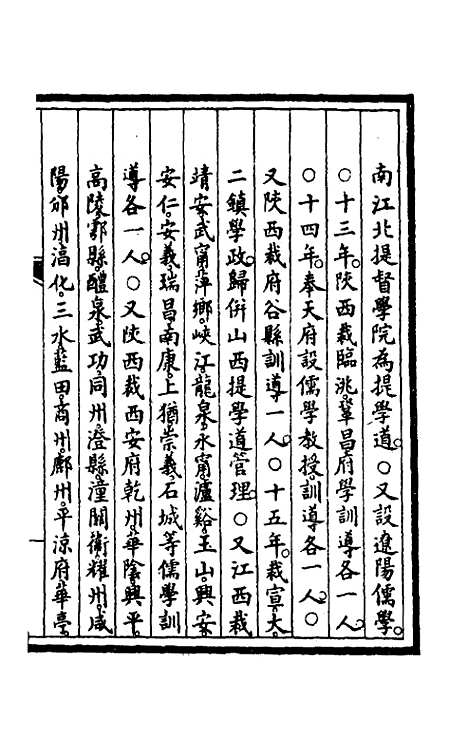 南江北提督學院為提學道。○又設遼陽儒學。
○十三年。陝西裁臨洮。鞏昌府學訓導各一人。
○十四年。奉天府設儒學教授。訓導各一人。○
又陝西裁府谷縣訓導一人。○十五年。裁宣。大。
二鎮學政。歸併山西提學道管理。○又江西裁
靖安。武甯。萍鄉。峽江。龍泉。永甯。瀘谿。玉山。興安。
安仁。安義。瑞昌。南康。上猶。崇義。石城等儒學訓
導各一人。○又陝西裁西安府乾州。華陰。興平。
高陵。鄠縣。醴泉。武功。同州。澄縣。潼關衞。耀州。咸
陽。邠州。湻化。三水。藍田。商州。鄜州。平涼府華亭。